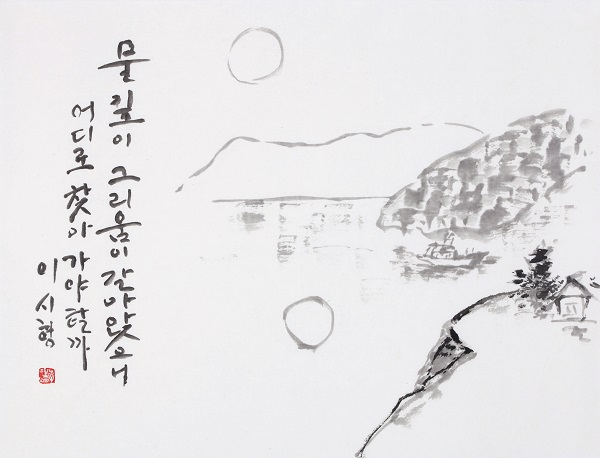 물 깊이 그리움이 갈아앉으니
어디로 찾아 가야 할까
이시형